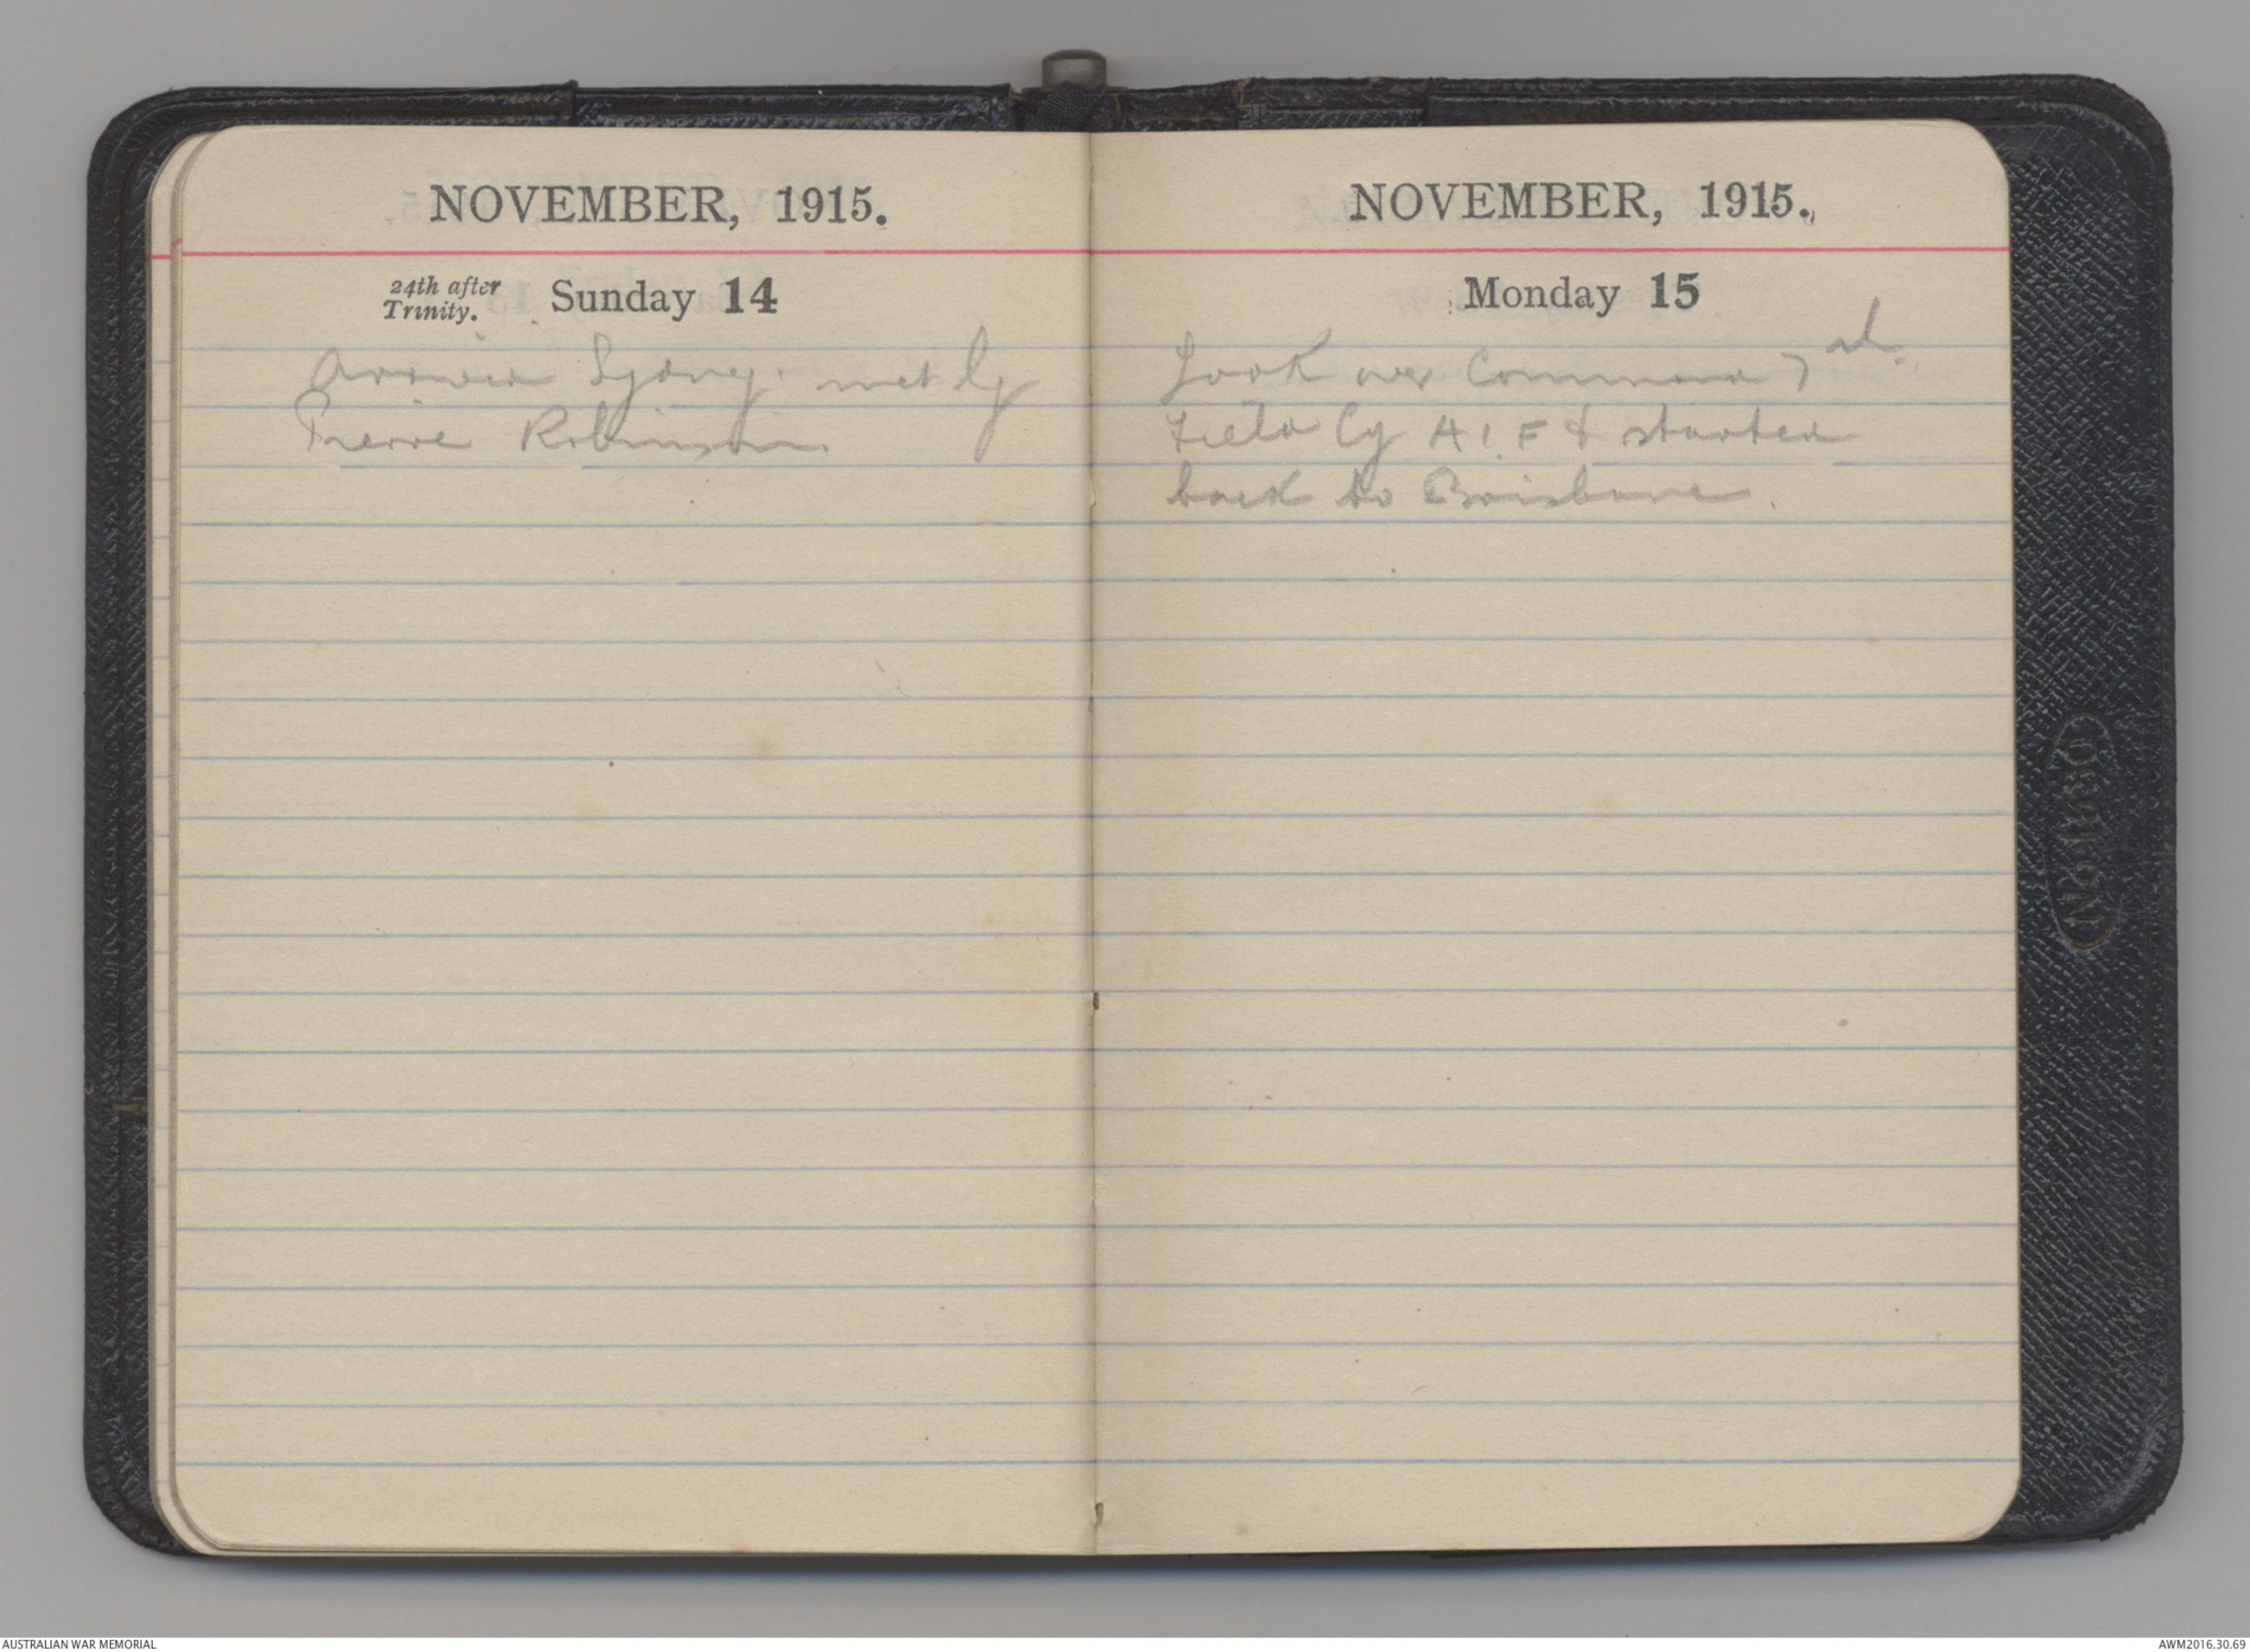 NOVEMBER, 1915.
24th after
Trinity.
Sunday 14
Arrived Sydney. met by
Pierre Robinson.
NOVEMBER, 1915.
Monday 15
Took over Command 7
Field Cy A I F & started
back to Brisbane.
AUSTRALIAN WAR MEMORIAL
AWM2016.30.69